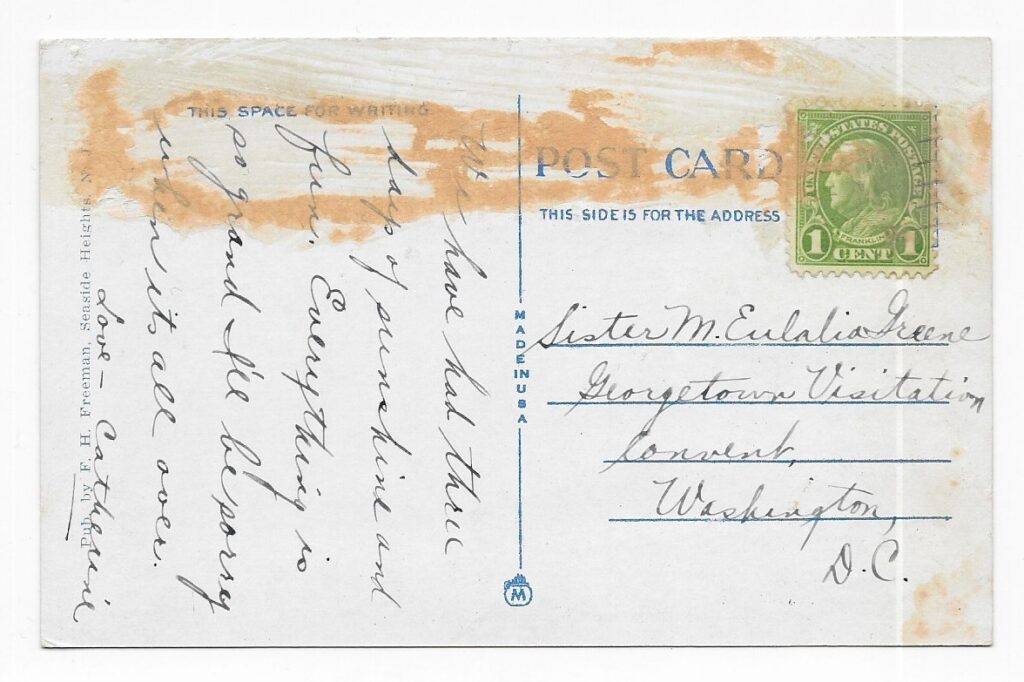 THIS SPACE FOR WRITING
We have had three
days of sunshine and
fun. Everything is
so grand I'll be sorry
when its all over.
Love — Catherine
Pub. by F. H. Freeman, Seaside Heights, N. J.
MADE IN USA
M
POST CARD
THIS SIDE IS FOR THE ADDRESS
UNITED STATES POSTAGE
FRANKLIN
1 CENT 1
Sister M. Eulalia Greene
Georgetown Visitation
Convent,
Washington,
D.C.